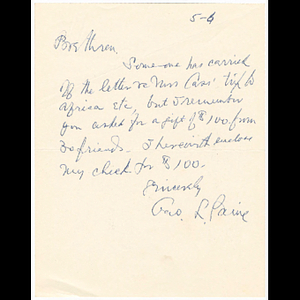 5-6
Brethren.
Someone has carried
off the letter re Mrs Cass' trip to
Africa etc, but I remember
you asked for a gift of $100 from
30 friends. I herewith enclose
my check for $100.
Sincerely
Geo. L. Paine